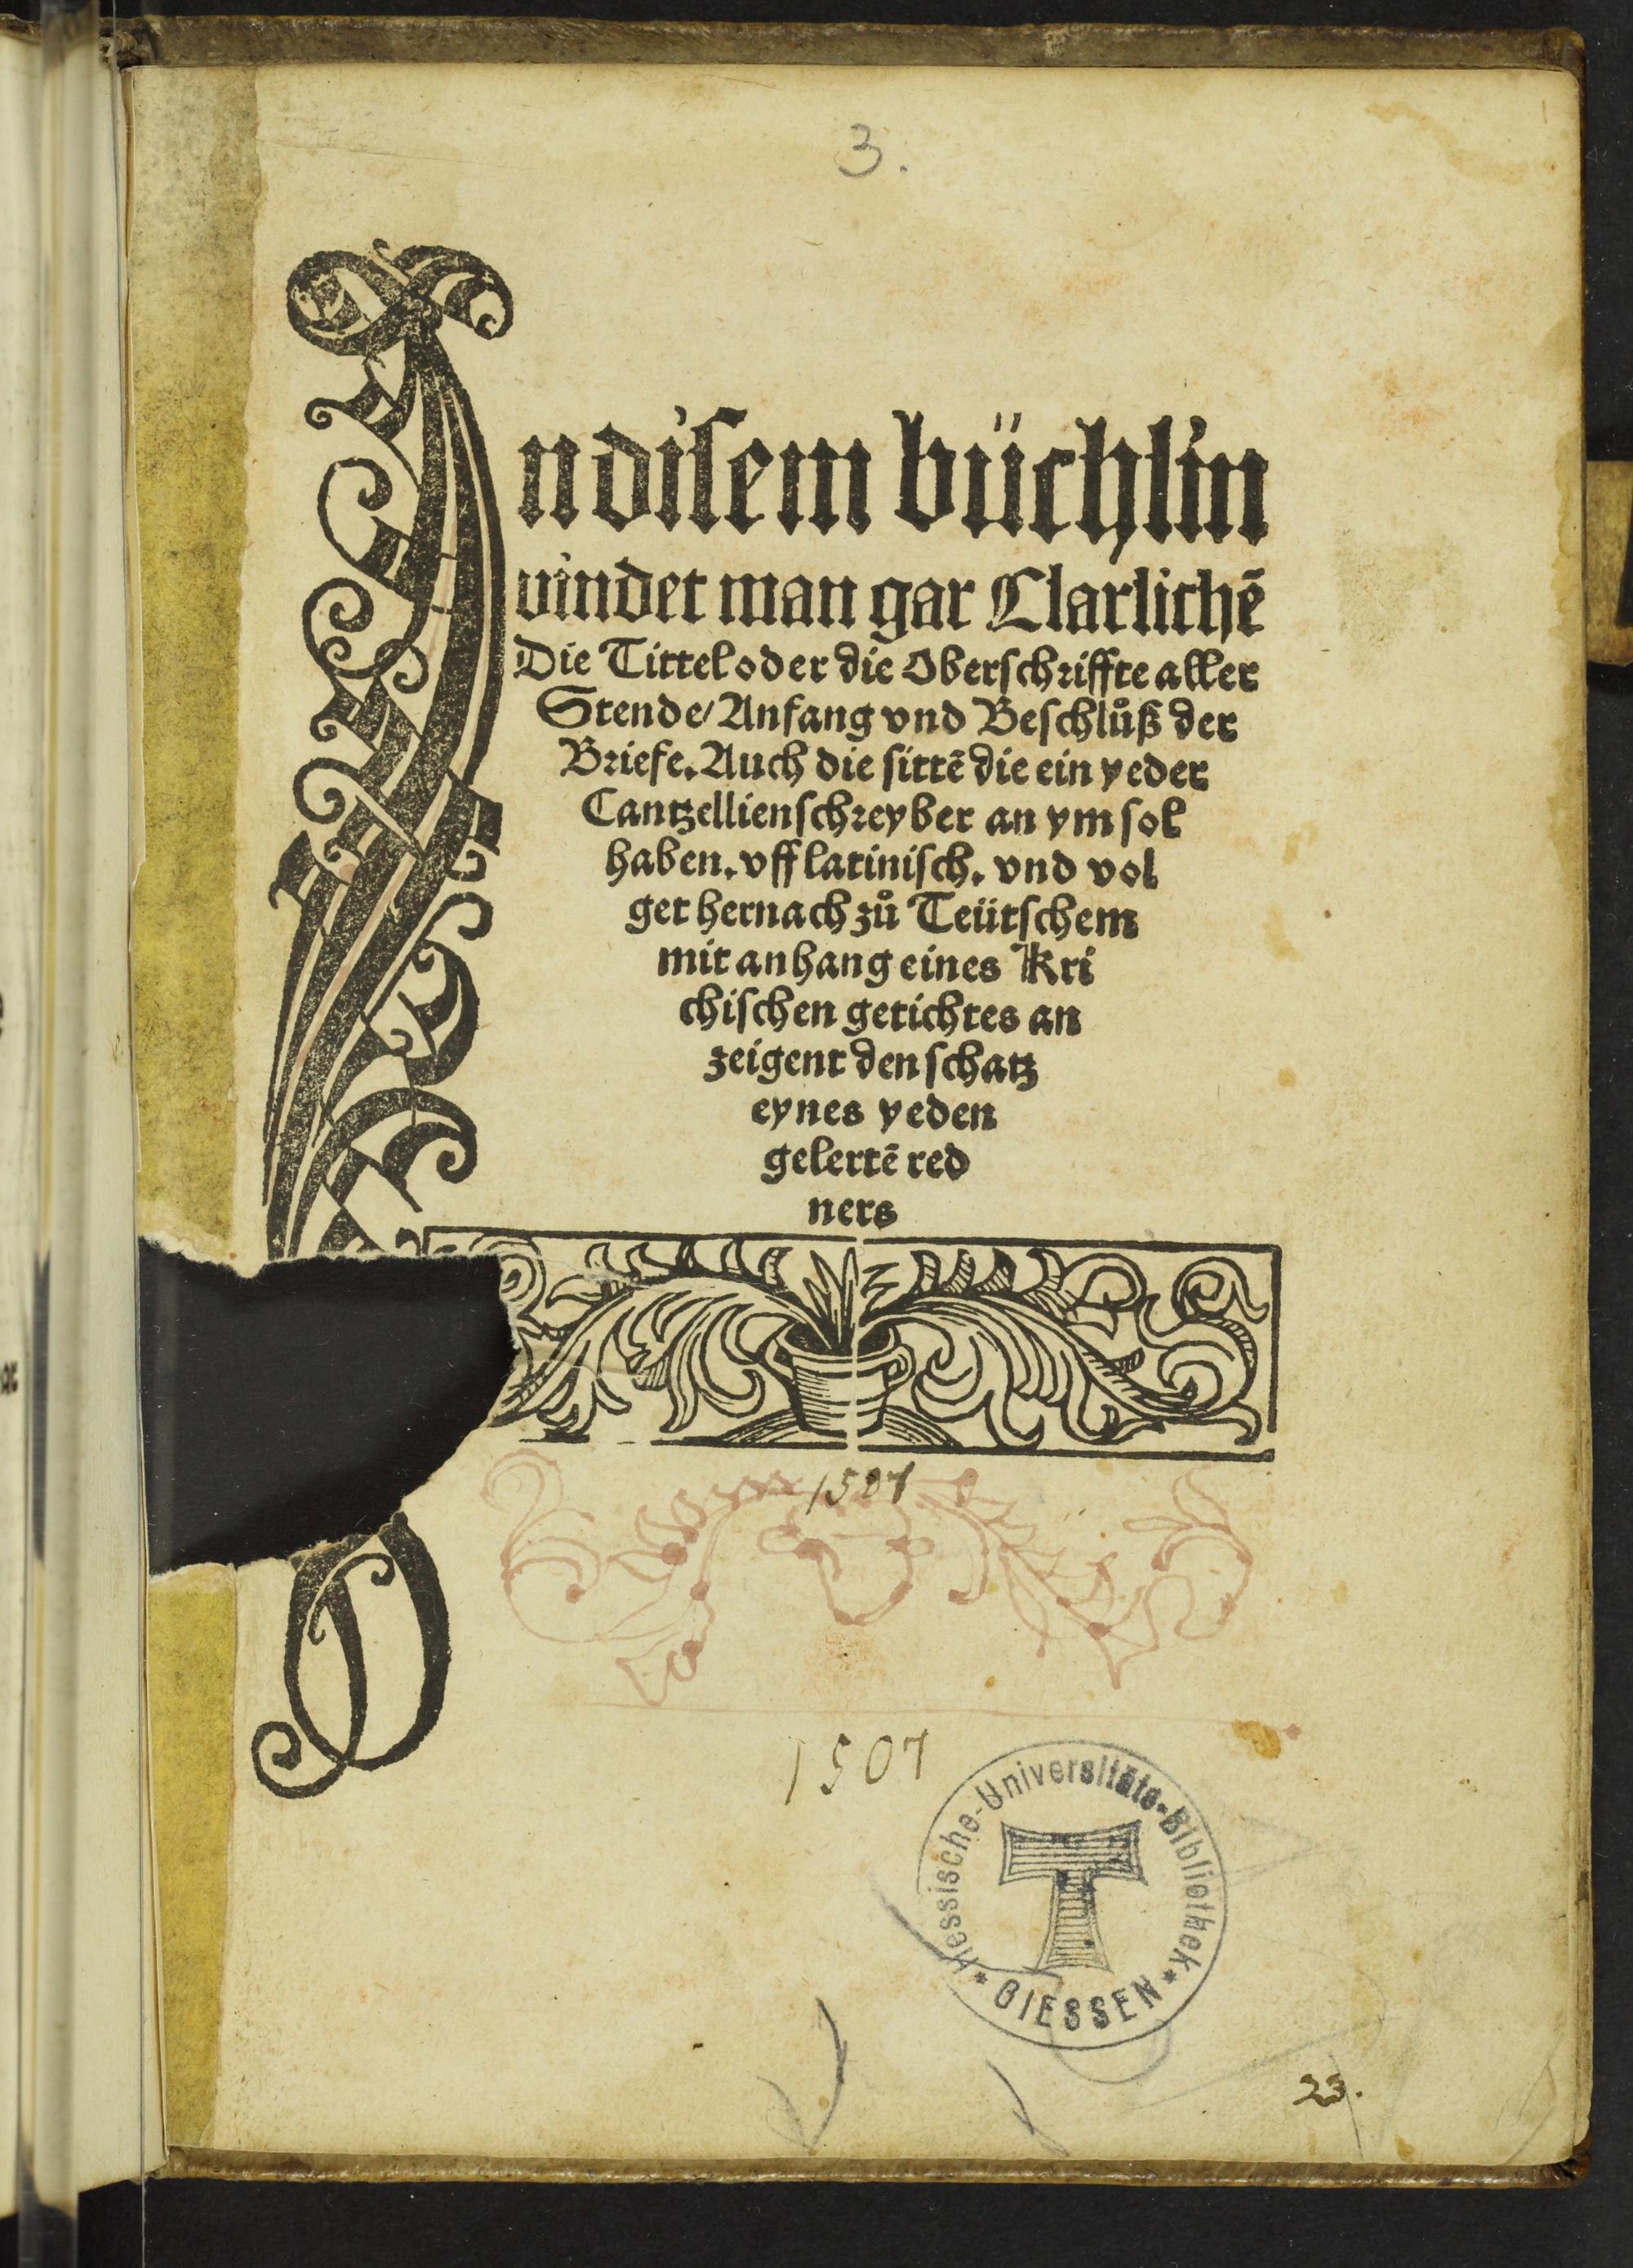 3.
Indisem büchlin
vindet man gar Clarlichē
Die Tittel oder die Oberschriffte aller
Stende/ Anfang vnd Beschlůß der
Briefe. Auch die sittē die ein yeder
Cantzellienschreyber an ym sol
haben. vff latinisch. vnd vol
get hernach zů Teütschem
mit anhang eines Kri
chischen getichtes an
zeigent den schatz
eynes yeden
gelertē red
ners
1507
1507
Hessische-Universitäts-Bibliothek
* GIESSEN *
23.